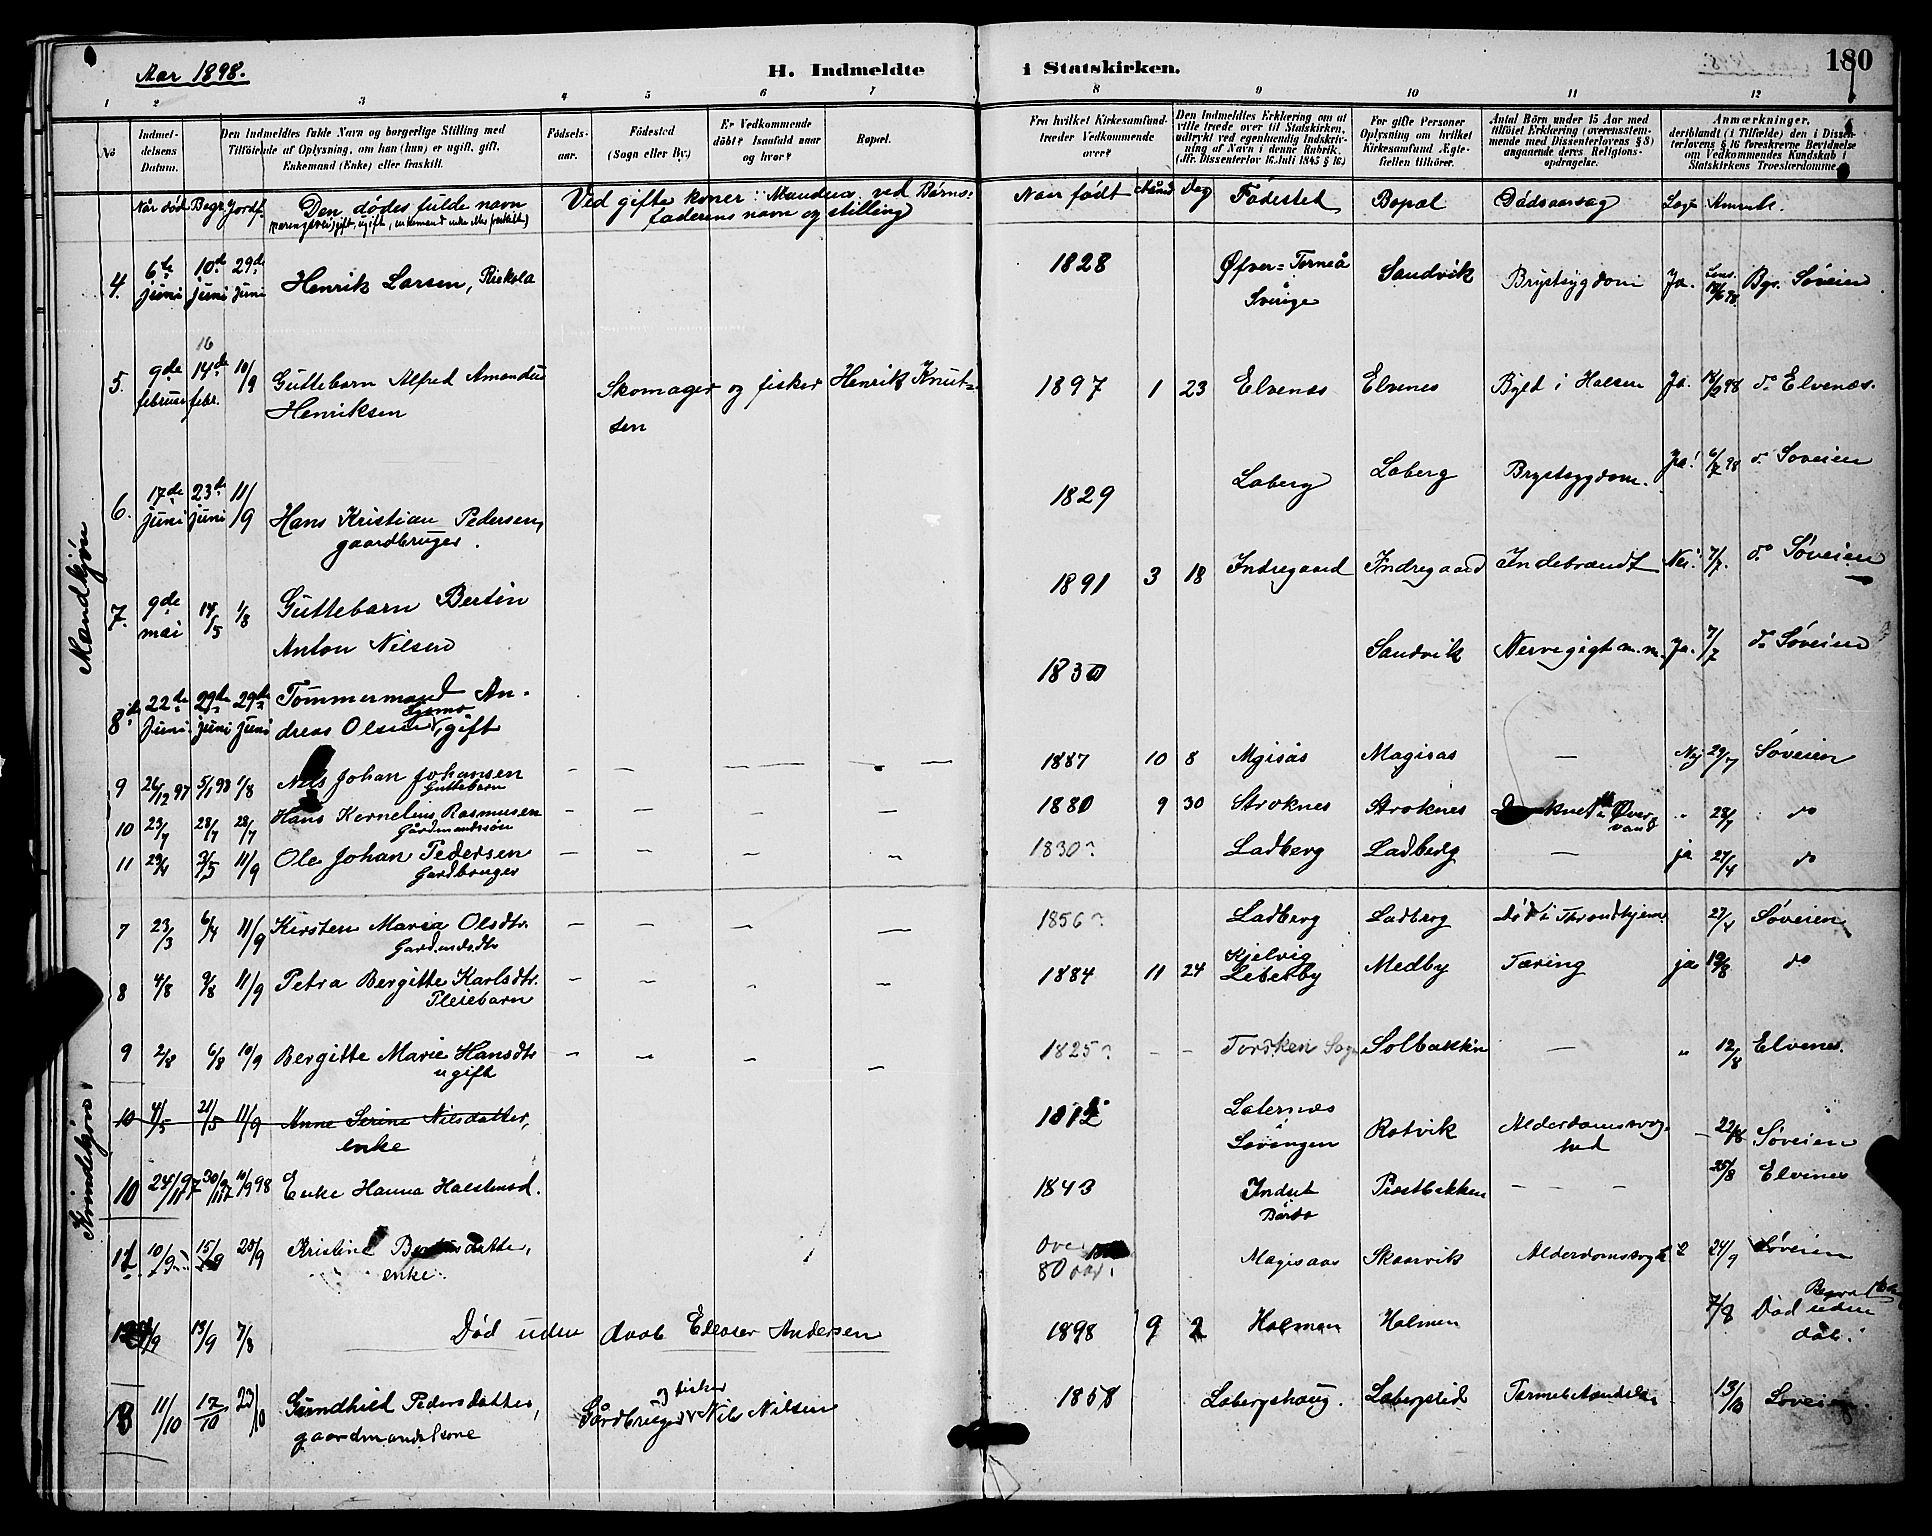 Aar 1898.
H. Indmeldte i Statskirken.
180
1 2 3 4 5 6 7 8 9 9 10 11 12
No
Indmeldelsens Datum.
Den Indmeldtes fulde Navn og borgerlige Stilling med Tilføiende af Oplysning, om han (hun) er ugift, gift, Enkemand (Enke) eller fraskilt.
Fødselsaar.
Fødested (Sogn eller By.)
Er Vedkommende døbt? Isaafald naar og hvor?
Bopæl.
Fra hvilket Kirkesamfund træder Vedkommende over?
Den Indmeldtes Erklæring om at ville træde over til Statskirken, udtrykt ved egenhændig Indskrivning af Navn i denne Rubrik. (Jfr. Dissenterlov 16 Juli 1845 § 16)
For gifte Personer Oplysning om hvilket Kirkesamfund Ægtefællen tilhører.
Antal Børn under 15 Aar med tilføiet Erklæring (overensstemmende med Dissenterlovens § 8) angaaende deres Religionsopdragelse.
Anmærkninger, deriblandt (i Tilfælde) den i Dissenterlovens § 16 foreskrevne Bevidnelse om Vedkommendes Kundskab i Statskirkens Troeslærdomme.
Når død Begr. Jordf. Den dødes fulde navn
Ved gifte koner: Mandens, ved Børns: faderens navn og stilling
Naar født Månd Dag Fødested Bopæl Dødsaarsag Læge Anmeld.
Mandkjøn
4. 6te juni 10de juni 29de juni Henrik Larsen, Riekola 1828 Øfver=Torneå Sverige Sandvik Brystsygdom Ja. Bgr. Søveien
5. 9de februar 16 14de febr. 10/9 Guttebarn Alfred Amandus Henriksen Skomager og fisker Henrik Knutsen 1897 1 23 Elvenes Elvenes Byld i Halsen Ja. do Elvenæs.
6. 17de juni 23de juni 11/9 Hans Kristian Pedersen, gaardbruger. 1829 Laberg Laberg Brystsygdom. Ja! 6/7 98 do Søveien
7. 9de mai 14/5 1/8 Guttebarn Bertin Anton Nilsen 1891 3 18 Indregaard Indregaard Indebrændt Nei. 7/7. do Søveien
8de 22de juni 29de juni 29de juni Tømmermand Andreas Olsen, gift 1830 Sandvik Nervegigt m.m. Ja. 7/7 do Søveien
9 26/12 97 5/1 98 1/8 Nils Johan Johansen Guttebarn — — — — 1887 10 8 Mgisås Magisas — Nej 29/7 Søveien
10 23/7 28/7 28/7 Hans Kornelius Rasmusen Gårdmandssøn — — — — 1880 9 30 Stroknes Stroknes Øvervand " 28/7 do
11 29/4 3/5 11/9 Ole Johan Pedersen Gardbruger — — — — 1830? Ladberg Ladberg — ja 27/4 do
Kvindekjøn
7 23/3 6/4 11/9 Kirsten Maria Olsdtr. Gardmdsdtr — — — — 1856? Ladberg Ladberg Død i Throndhjem 27/4 Søveien
8 4/8 9/8 11/9 Petra Bergitte Karlsdtr. Pleiebarn — — — — 1884 11 24 Kjelvig Leberby Medby Tæring ja 19/8 do
9 2/8 6/8 10/9 Bergitte Marie Hansdtr ugift — — — — 1825? — — Torsken Sogn Solbakken — " 12/8 Elvenes.
10 4/5 21/5 11/9 Anne Serine Nilsdatter, enke 1812 Løvangen Rotvik Alderdomssvaghed — 22/8 Søveien
10 24/11 97 30/11 97 10/9 98 Enke Hanna Halstensd. 1843 Indset Bardo — — — 25/8 Elvenes
11 10/9 15/9 25/9 Kristine enke. Over 80 aar. Magisaas Skaarvik Alderdomssvag 24/9 Søveien
13/9 7/8 Død uden daab Edvater Andersen 1898 9 2 Holmen Holmen 7/8 Død uden dåb.
11/10 17/10 23/10 Gundhild Pedersdatter, gaardmandskone Gårdbruger og fisker Nils Nilsen 1858 Labergshaug. Labergslid 13/10 Søveien